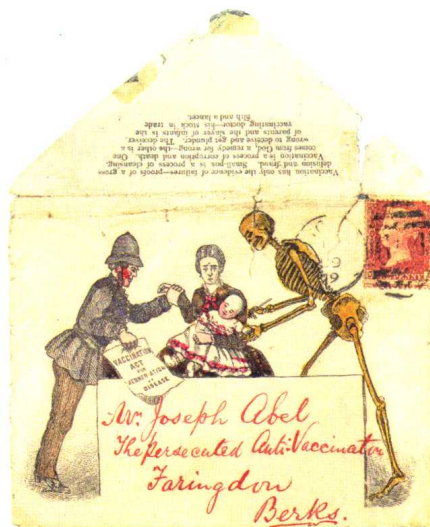 Vaccination has only the evidence of failures—proofs of a gross
delusion and fraud. Small-pox is a process of cleansing.
Vaccination is a process of corruption and death. One
comes from God, a remedy for wrong—the other is a
wrong to deceive and get plunder. The deceiver
of parents and the slayer of infants is the
vaccinating doctor—his stock in trade
filth and a lancet.
VACCINATION
ACT
FOR
JENNER-ATION
OF
DISEASE
Mr. Joseph Abel
The persecuted Anti-Vaccinator
Faringdon
Berks.